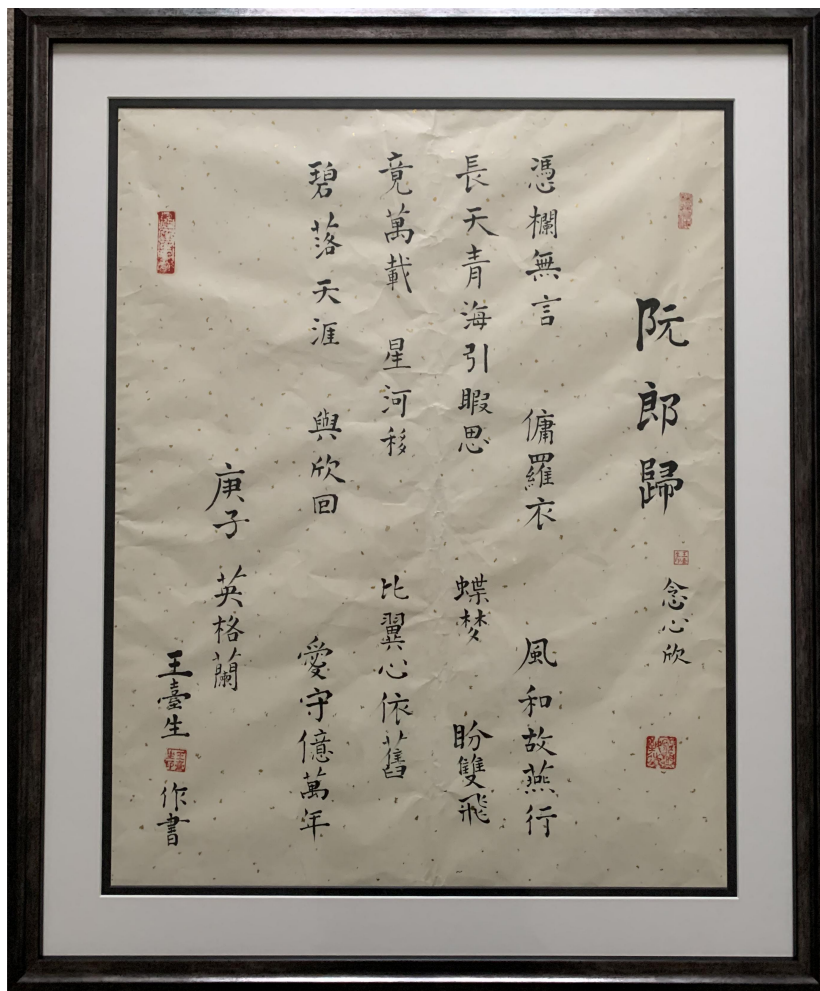 阮郎歸
念心欣
憑欄無言 傭羅衣 風和故燕行
長天青海引暇思 蝶梦 盼雙飛
竟萬載 星河移 比翼心依舊
碧落天涯 與欣回 愛守億萬年
庚子 英格蘭
王臺生 作書